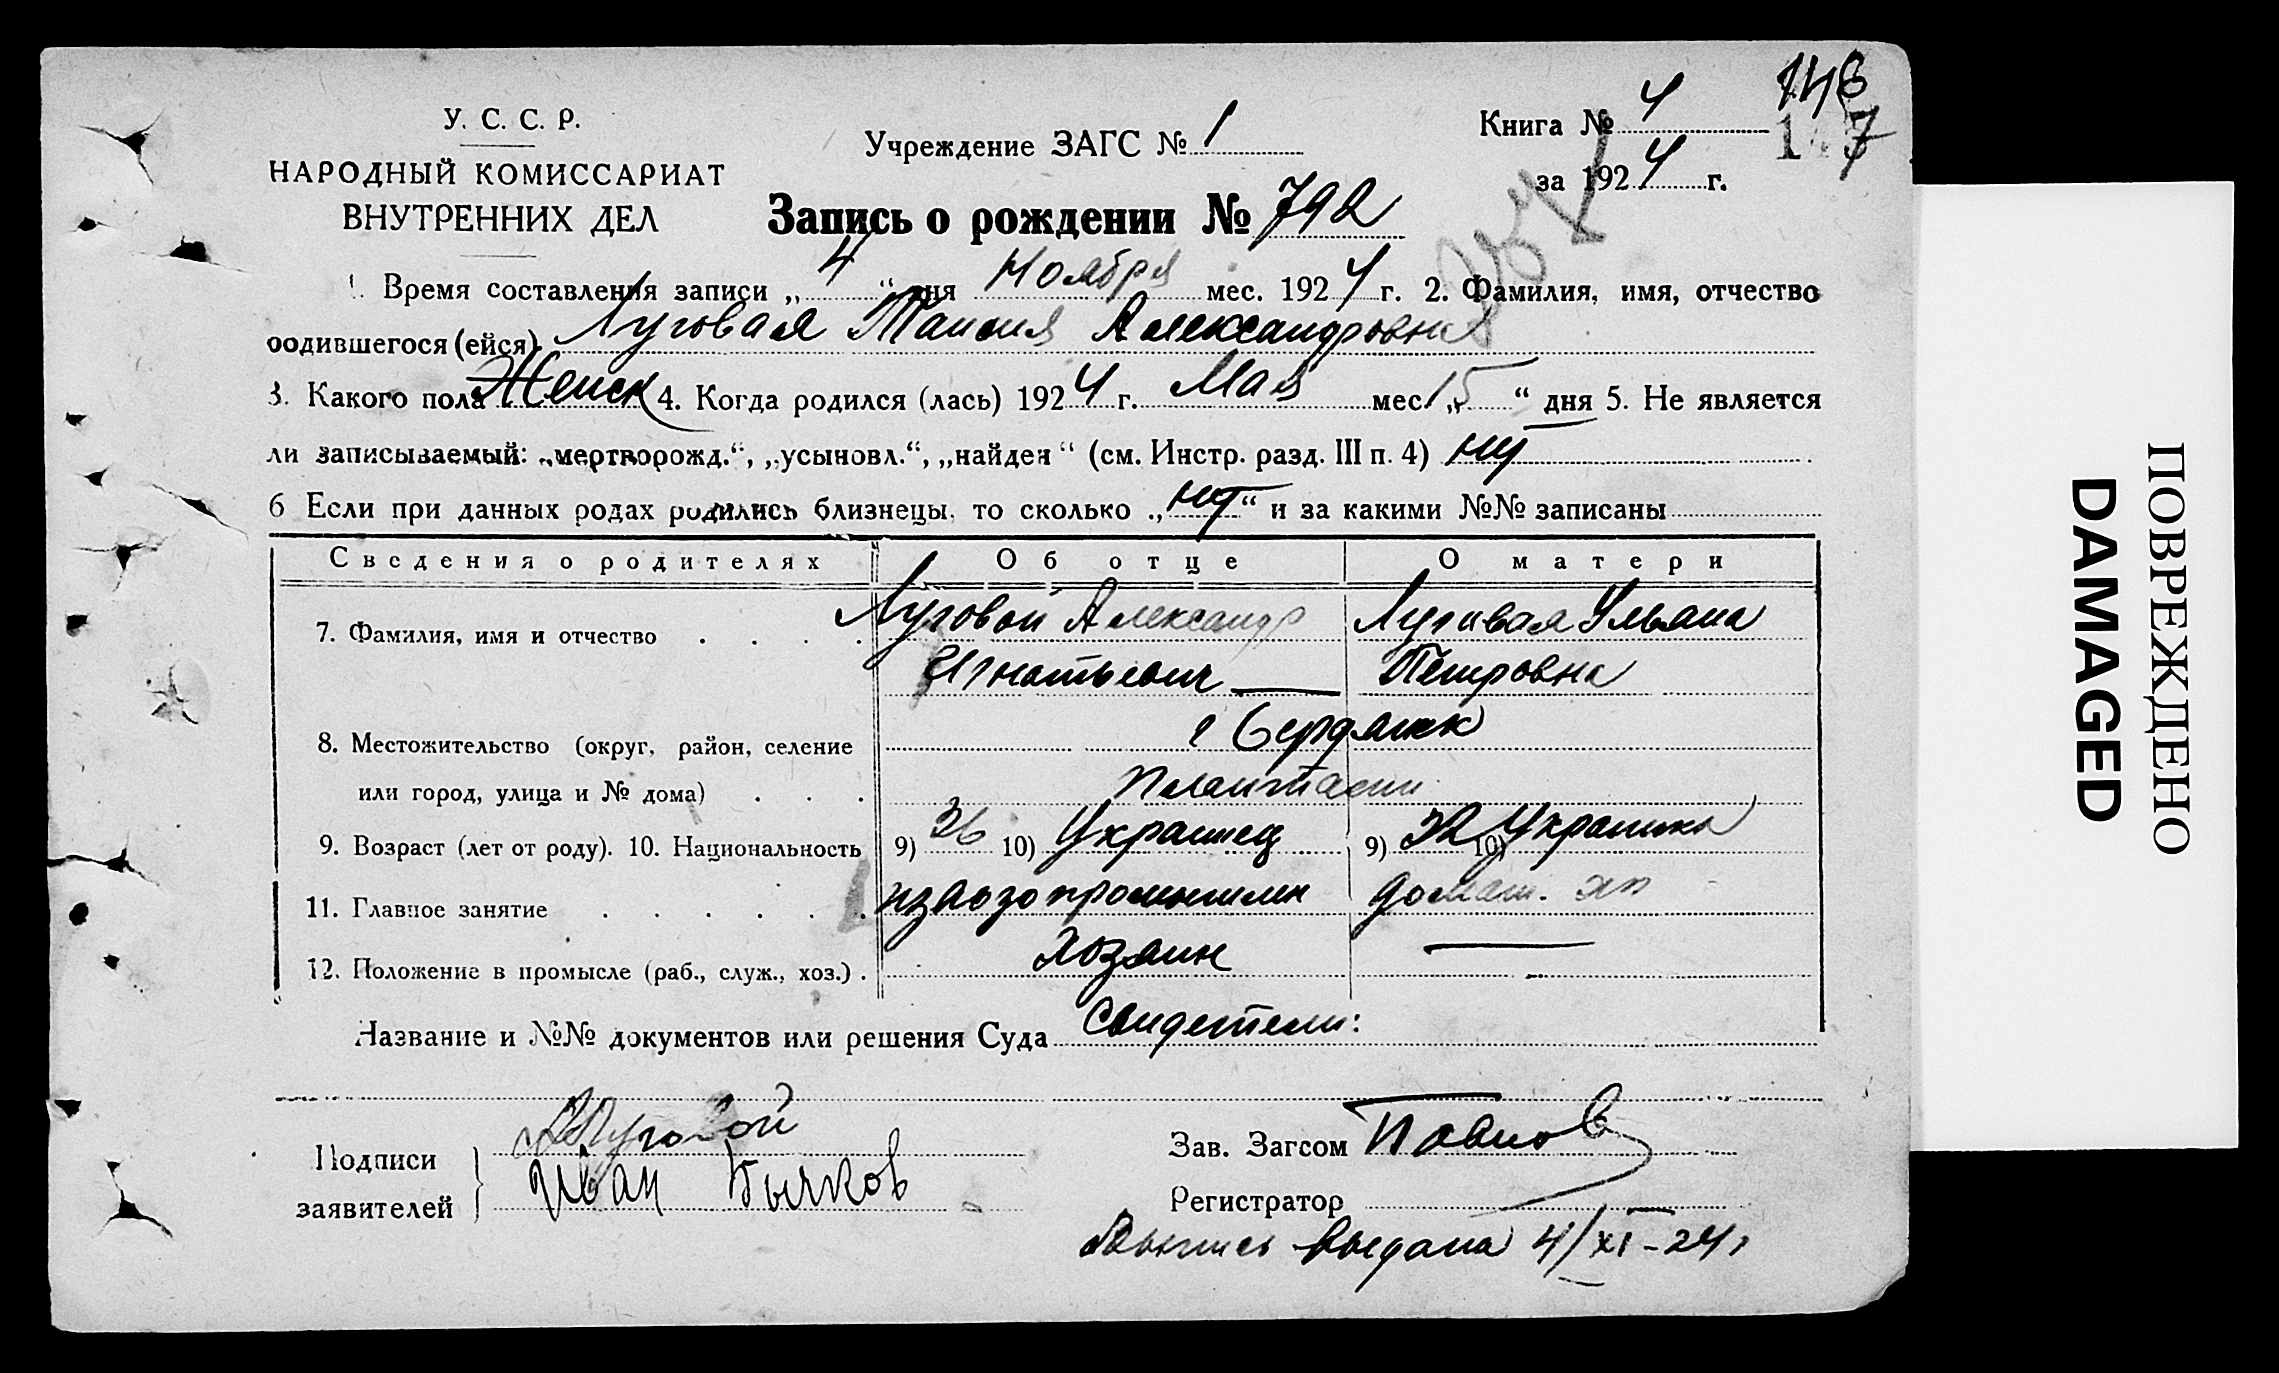 148
147
У. С. С. Р.
НАРОДНЫЙ КОМИССАРИАТ
ВНУТРЕННИХ ДЕЛ
Учреждение ЗАГС № 1
Книга № 4
за 1924 г.
Запись о рождении № 792
1. Время составления записи „4“ дня Ноября мес. 1924 г. 2. Фамилия, имя, отчество
родившегося (ейся) Луговая Таисия Александровна
3. Какого пола Женск 4. Когда родился (лась) 1924 г. Мая мес. „15“ дня 5. Не является
ли записываемый: „мертворожд.“, „усыновл.“, „найден“ (см. Инстр. разд. III п. 4) нет
6 Если при данных родах родились близнецы, то сколько „нет“ и за какими №№ записаны
Сведения о родителях Об отце О матери
7. Фамилия, имя и отчество . . . . Луговой Александр Луговая Ульяна
Игнатьевич Петровна
8. Местожительство (округ, район, селение г Бердянск
или город, улица и № дома) . . .
9. Возраст (лет от роду). 10. Национальность 9) 36 10) Украинец 9) 32 10) Украинка
11. Главное занятие . . . . . . извозопромышлен домаш. хоз
12. Положение в промысле (раб., служ., хоз.) . Хозяин —
Название и №№ документов или решения Суда Свидетели:
Подписи
заявителей
АЛуговой
Иван Бычков
Зав. Загсом
Регистратор
Выпись выдана 4/XI-24г
ПОВРЕЖДЕНО
DAMAGED